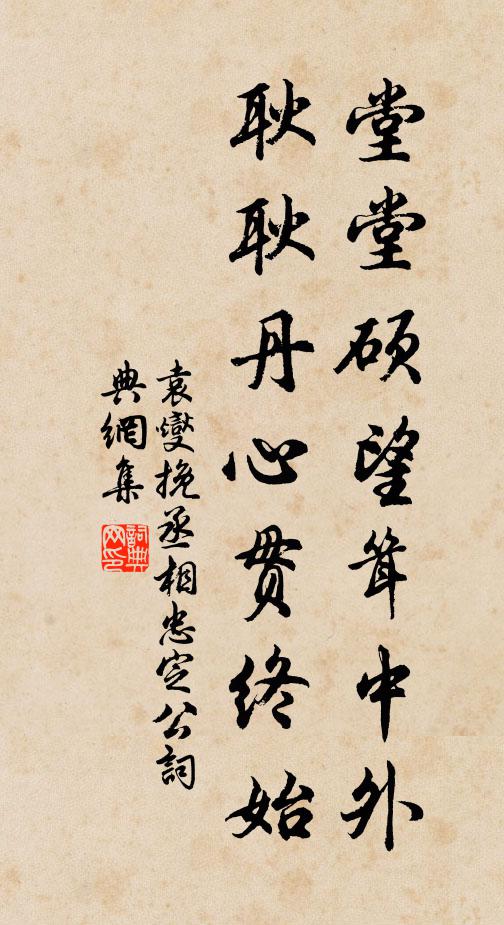 堂堂硕望耸中外
耿耿丹心贯终始
袁燮挽丞相忠定公詞
典網集
詞典网印